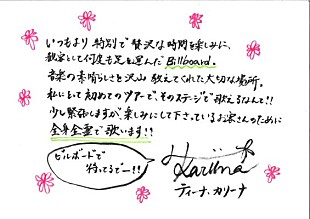 いつもより特別で贅沢な時間を楽しみに、
観客として何度も足を運んだBillboard.
音楽の素晴らしさを沢山教えてくれた大切な場所。
私にとって初めてのツアーで、そのステージで歌えるなんて!!
少し緊張しますが、楽しみにして下さっているお客さんのために
全身全霊で歌います!!
ビルボードで
待ってるでー!!
Kariina
ティーナ・カリーナ